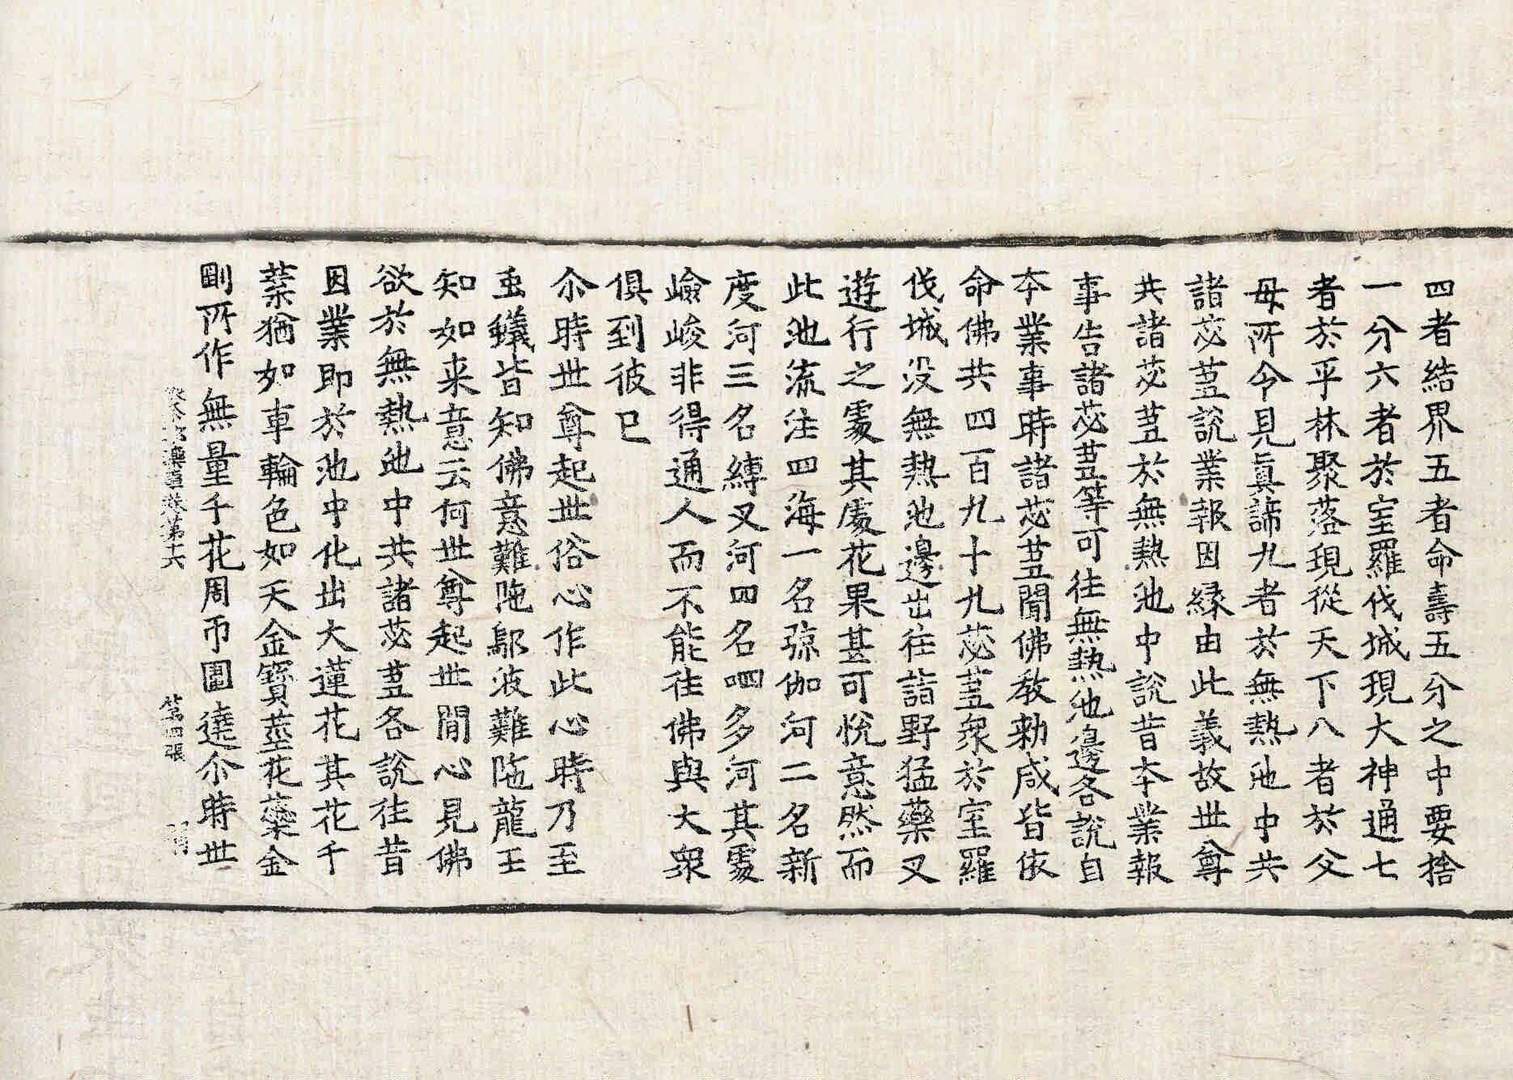 四者結界五者命壽五分之中要捨
一分六者於室羅伐城現大神通七
者於平林聚落現從天下八者於父
母所令見真諦九者於無熱池中共
諸苾芻說業報因緣由此義故世尊
共諸苾芻於無熱池中說昔夲業報
事告諸苾芻等可往無熱池邊各說自
夲業事時諸苾芻聞佛教勑咸皆依
命佛共四百九十九苾芻衆於室羅
伐城没無熱池邊出往詣野猛藥叉
遊行之處其處花果甚可悅意然而
此池流注四海一名弶伽河二名新
度河三名縛叉河四名呬多河其處
嶮峻非得通人而不能往佛與大衆
俱到彼已
尒時世尊起世俗心作此心時乃至
䖝蟻皆知佛意難陁鄔波難陁龍王
知如来意云何世尊起世間心見佛
欲於無熱池中共諸苾芻各說往昔
因業即於池中化出大蓮花其花千
葉猶如車輪色如天金寶莖花蘂金
剛所作無量千花周帀圍遶尒時世
藥事卷第十六 第四張